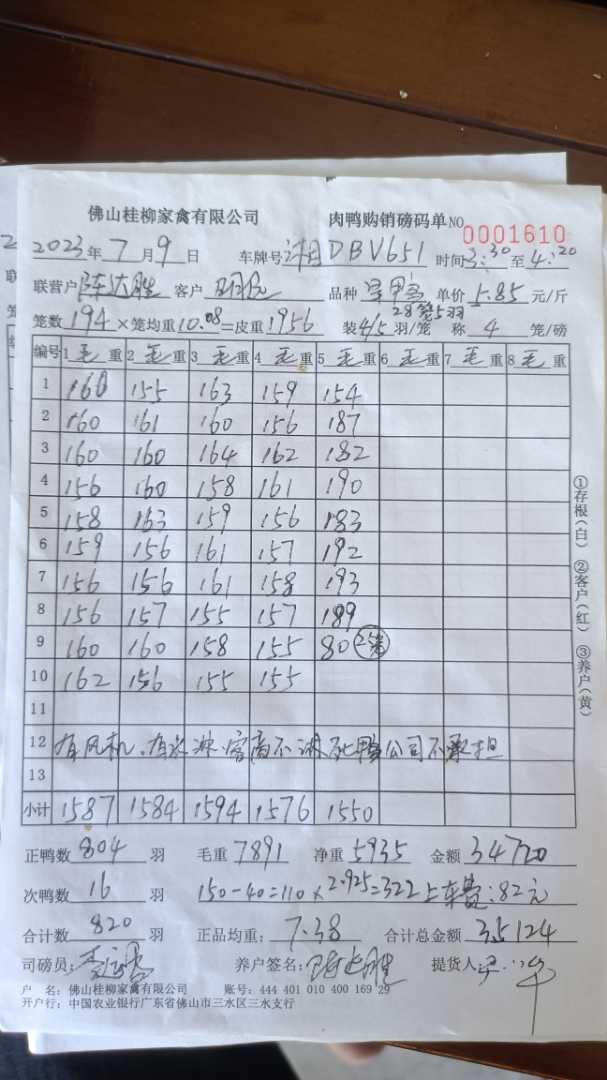 佛山桂柳家禽有限公司 肉鸭购销磅码单 NO 0001610
2023年7月9日 车牌号 湘DBV651 时间3:30至4:20
联营户 陈达胜 客户 品种 单价 5.85 元/斤
28笼5羽
笼数 194 ×笼均重 10.08 =皮重 1956 装 4/5 羽/笼 称 4 笼/磅
编号 1 毛 重 2 毛 重 3 毛 重 4 毛 重 5 毛 重 6 毛 重 7 毛 重 8 毛 重
1 160 155 163 159 154
2 160 161 160 156 187
3 160 160 164 162 182
4 156 160 158 161 190
5 158 163 159 156 183
6 159 156 161 157 192
7 156 156 161 158 193
8 156 157 155 157 189
9 160 160 158 155 80 2笼
10 162 156 155 155
11
12 有风机,有水冲,客商不淋死鸭公司不承担
13
小计 1587 1584 1594 1576 1550
正鸭数 804 羽 毛重 7891 净重 5935 金额 34720
次鸭数 16 羽 150-40=110×2.925=322 上车费:82元
合计数 820 羽 正品均重: 7.38 合计总金额 35124
司磅员: 养户签名: 陈达胜 提货人:
户 名: 佛山桂柳家禽有限公司 账号: 444 401 010 400 169 29
开户行: 中国农业银行广东省佛山市三水区三水支行
①存根(白) ②客户(红) ③养户(黄)